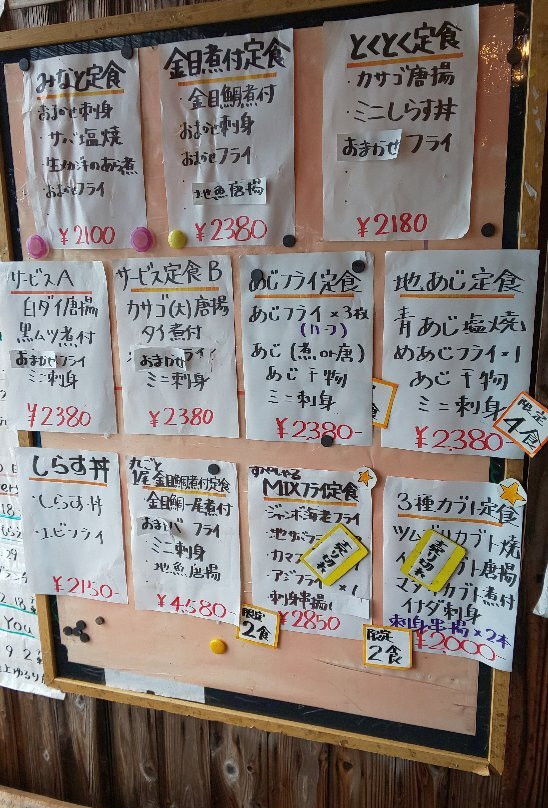 みなと定食
おまかせ刺身
・サバ塩焼
おまかせフライ
¥2100
金目煮付定食
・金目鯛煮付
おまかせ刺身
おまかせフライ
地魚唐揚
¥2380
とくとく定食
・カサゴ唐揚
・ミニしらす丼
おまかせフライ
¥2180
サービスA
白ダイ唐揚
黒ムツ煮付
おまかせフライ
ミニ刺身
¥2380
サービス定食B
カサゴ(大)唐揚
タイ煮付
おまかせフライ
ミニ刺身
¥2380
あじフライ定食
あじフライ×3枚
あじ(煮or唐)
あじ干物
ミニ刺身
¥2380-
食
地あじ定食
青あじ塩焼
めあじフライ×1
あじ干物
ミニ刺身
¥2380-
限定
4食
しらす丼
・しらす丼
・エビフライ
¥2150-
丸ごと
1尾金目鯛煮付定食
金目鯛一尾煮付
フライ
ミニ刺身
・地魚唐揚
¥4,580-
限定
2食
MIXフライ定食
・ジャンボ海老フライ
・アジフライ×1
刺身串揚
¥2850
売り切れ
限定
2食
3種カブト定食
ツムブリカブト焼
カブト唐揚
カブト煮付
イナダ刺身
刺身串揚×2本
¥2000-
売り切れ